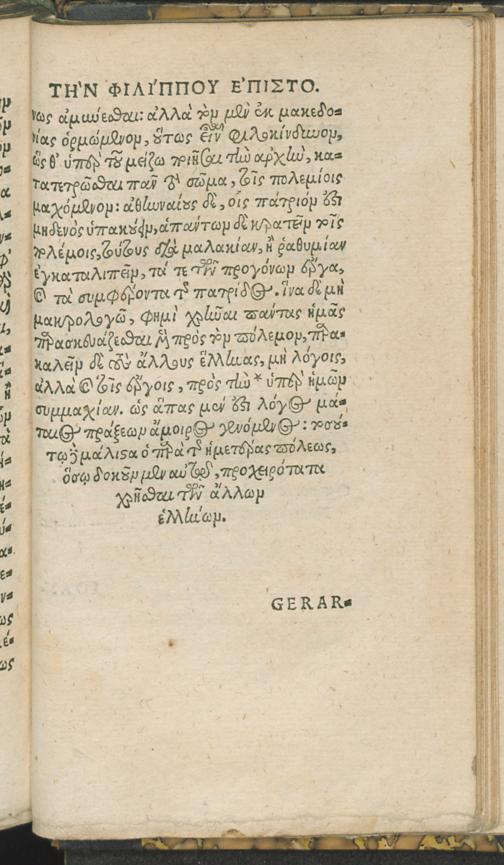 ΤΗ'Ν ΦΙΛΙ'ΠΠΟΥ Ε'ΠΙΣΤΟ.
νως ἀμύνεσθαι: ἀλλὰ τὸν μὲν ἐκ μακεδο-
νίας ὁρμώμενον, οὕτως εἶναι φιλοκίνδυνον,
ὥς θ' ὑπὲρ τοῦ μείζω ποιῆσαι τὴν ἀρχὴν, κα-
τατετρῶσθαι πᾶν τὸ σῶμα, τοῖς πολεμίοις
μαχόμενον: ἀθηναίους δὲ, οἷς πάτριόν ἐστι
μηδενὸς ὑπακούειν, ἁπάντων δὲ κρατεῖν τοῖς
πολέμοις, τούτους διὰ μαλακίαν, ἢ ῥαθυμίαν
ἐγκαταλιπεῖν, τά τε τῶν προγόνων ἔργα,
καὶ τὰ συμφέροντα τῆς πατρίδος. ἵνα δὲ μὴ
μακρολογῶ, φημὶ χρῆναι πάντας ἡμᾶς
παρασκευάζεσθαι μὲν πρὸς τὸν πόλεμον, παρα-
καλεῖν δὲ τοὺς ἄλλους ἕλληνας, μὴ λόγοις,
ἀλλὰ καὶ τοῖς ἔργοις, πρὸς τὴν* ὑπὲρ ἡμῶν
συμμαχίαν. ὡς ἅπας μέν ἐστι λόγος μά-
ταιος πράξεων ἄμοιρος γενόμενος: τοσού-
τῳ δὲ μάλιστα ὁ παρὰ τῆς ἡμετέρας πόλεως,
ὅσῳ δοκοῦμεν αὐτῷ, προχειρότατα
χρῆσθαι τῶν ἄλλων
ἑλλήνων.
GERAR-